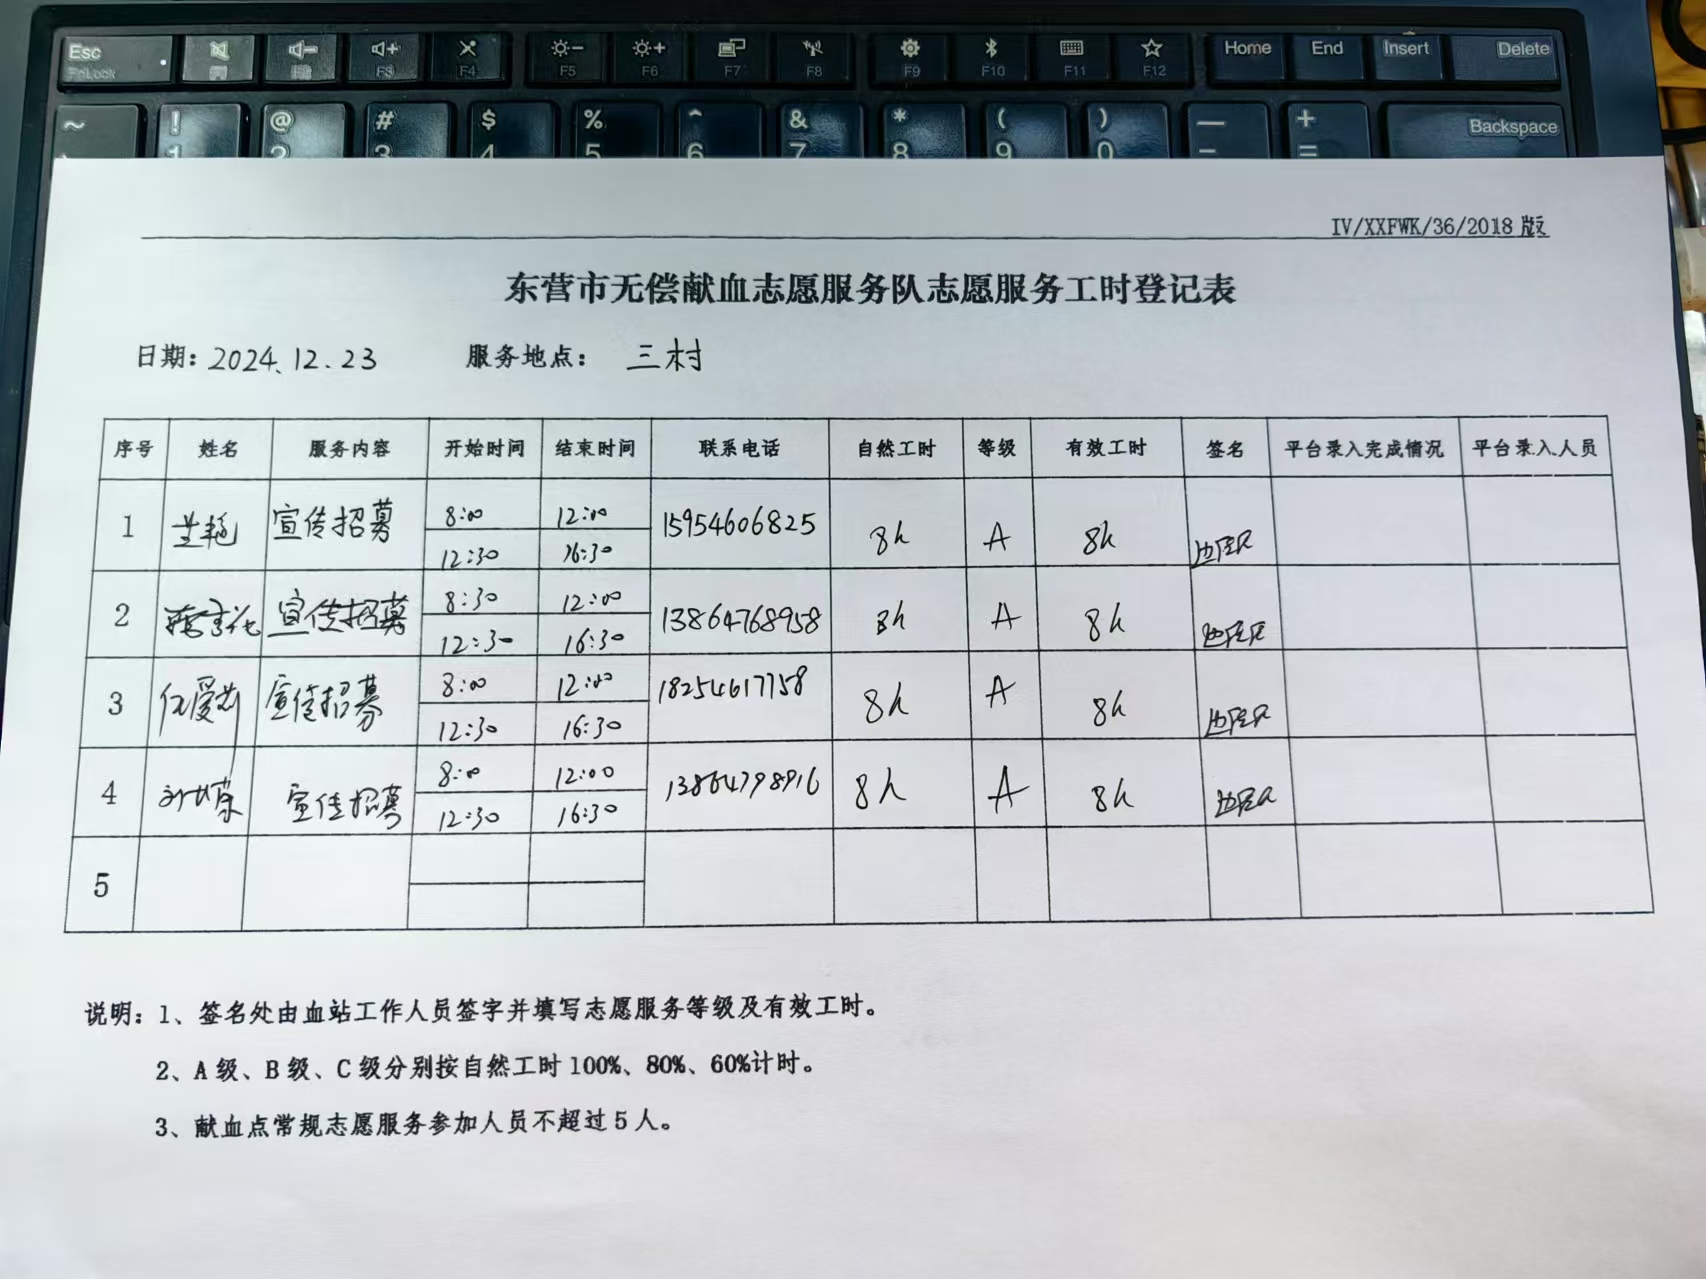 Esc
FnLock
F3 F4 F5 F6 F7 F8 F9 F10 F11 F12
Home End Insert Delete
~ ! @ # $ % ^ & * ( ) — + Backspace
1 2 3 4 5 6 7 8 9 0 - =
IV/XXFWK/36/2018 版
东营市无偿献血志愿服务队志愿服务工时登记表
日期: 2024.12.23 服务地点: 三村
序号 姓名 服务内容 开始时间 结束时间 联系电话 自然工时 等级 有效工时 签名 平台录入完成情况 平台录入人员
1 宣传招募 8:00 12:00 15954606825 8h A 8h
12:30 16:30
2 宣传招募 8:30 12:00 13864768958 8h A 8h
12:30 16:30
3 宣传招募 8:00 12:00 18254617758 8h A 8h
12:30 16:30
4 宣传招募 8:00 12:00 13864798916 8h A 8h
12:30 16:30
5
说明: 1、签名处由血站工作人员签字并填写志愿服务等级及有效工时。
2、A 级、B 级、C 级分别按自然工时 100%、80%、60%计时。
3、献血点常规志愿服务参加人员不超过 5 人。